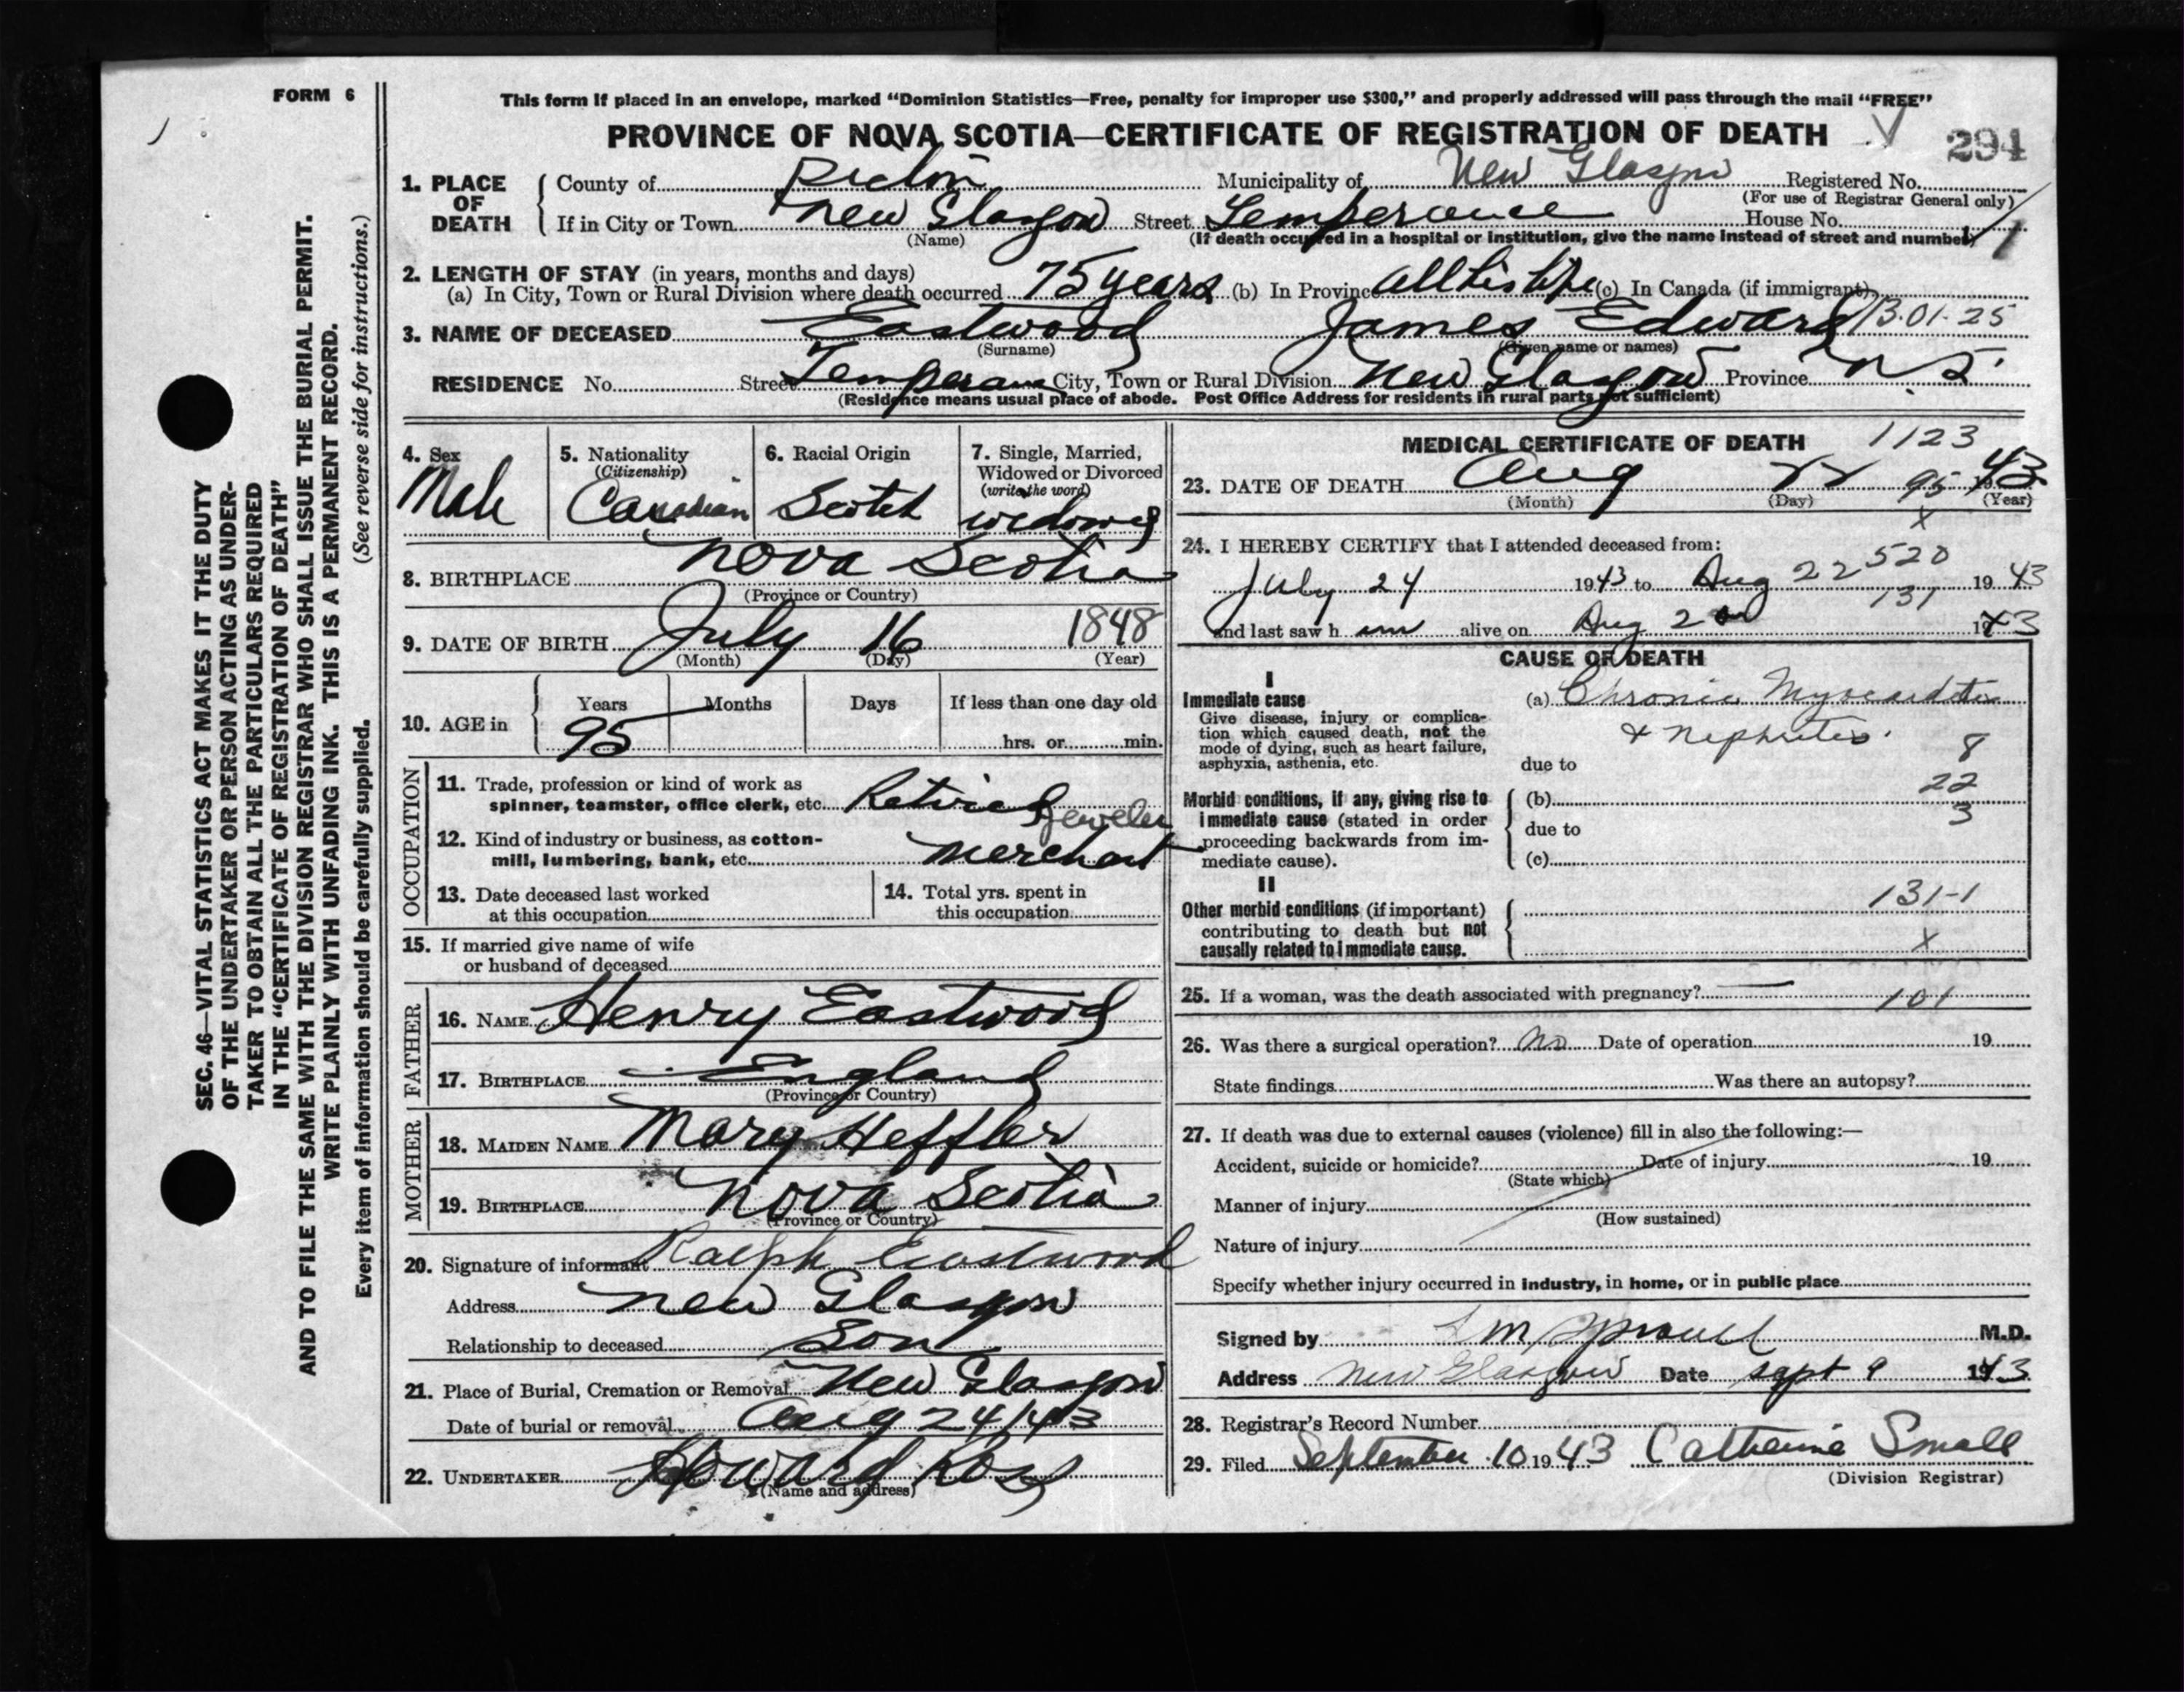 FORM 6
This form if placed in an envelope, marked “Dominion Statistics—Free, penalty for improper use $300,” and properly addressed will pass through the mail “FREE”
PROVINCE OF NOVA SCOTIA—CERTIFICATE OF REGISTRATION OF DEATH
294
1. PLACE OF DEATH
County of Pictou Municipality of New Glasgow Registered No.
(For use of Registrar General only)
If in City or Town New Glasgow Street Temperance House No.
(Name) (If death occurred in a hospital or institution, give the name instead of street and number)
2. LENGTH OF STAY (in years, months and days)
(a) In City, Town or Rural Division where death occurred 75 years (b) In Province all his life (c) In Canada (if immigrant)
3. NAME OF DECEASED Eastwood James Edward 13·01·25
(Surname) (Given name or names)
RESIDENCE No. Street Temperance City, Town or Rural Division New Glasgow Province N.S.
(Residence means usual place of abode. Post Office Address for residents in rural parts not sufficient)
4. Sex
Male
5. Nationality
(Citizenship)
Canadian
6. Racial Origin
Scotch
7. Single, Married,
Widowed or Divorced
(write the word)
widowed
8. BIRTHPLACE Nova Scotia
(Province or Country)
9. DATE OF BIRTH July 16 1848
(Month) (Day) (Year)
10. AGE in
Years Months Days If less than one day old
95 hrs. or min.
OCCUPATION
11. Trade, profession or kind of work as
spinner, teamster, office clerk, etc. Retired
Jeweler
12. Kind of industry or business, as cotton-
mill, lumbering, bank, etc. Merchant
13. Date deceased last worked
at this occupation
14. Total yrs. spent in
this occupation
15. If married give name of wife
or husband of deceased
FATHER
16. NAME Henry Eastwood
17. BIRTHPLACE England
(Province or Country)
MOTHER
18. MAIDEN NAME Mary Heffler
19. BIRTHPLACE Nova Scotia
(Province or Country)
20. Signature of informant Ralph Eastwood
Address New Glasgow
Relationship to deceased Son
21. Place of Burial, Cremation or Removal New Glasgow
Date of burial or removal Aug 24/43
22. UNDERTAKER Howard Ross
(Name and address)
MEDICAL CERTIFICATE OF DEATH 1123
23. DATE OF DEATH Aug 22 95 1943
(Month) (Day) (Year)
x
24. I HEREBY CERTIFY that I attended deceased from:
520
July 24 1943 to Aug 22 1943
131
and last saw him alive on Aug 20 1943
CAUSE OF DEATH
I
Immediate cause
Give disease, injury or complica-
tion which caused death, not the
mode of dying, such as heart failure,
asphyxia, asthenia, etc.
(a) Chronic Myocarditis
& Nephritis.
8
due to
22
Morbid conditions, if any, giving rise to
immediate cause (stated in order
proceeding backwards from im-
mediate cause).
(b)
3
due to
(c)
II
Other morbid conditions (if important)
contributing to death but not
causally related to immediate cause.
131-1
x
25. If a woman, was the death associated with pregnancy?
101
26. Was there a surgical operation? No Date of operation 19
State findings Was there an autopsy?
27. If death was due to external causes (violence) fill in also the following:—
Accident, suicide or homicide? Date of injury 19
(State which)
Manner of injury
(How sustained)
Nature of injury
Specify whether injury occurred in industry, in home, or in public place
Signed by M.D.
Address New Glasgow Date Sept 9 1943
28. Registrar's Record Number
29. Filed September 10 1943 Catherine Small
(Division Registrar)
SEC. 46—VITAL STATISTICS ACT MAKES IT THE DUTY
OF THE UNDERTAKER OR PERSON ACTING AS UNDER-
TAKER TO OBTAIN ALL THE PARTICULARS REQUIRED
IN THE “CERTIFICATE OF REGISTRATION OF DEATH”
AND TO FILE THE SAME WITH THE DIVISION REGISTRAR WHO SHALL ISSUE THE BURIAL PERMIT.
WRITE PLAINLY WITH UNFADING INK. THIS IS A PERMANENT RECORD.
Every item of information should be carefully supplied. (See reverse side for instructions.)